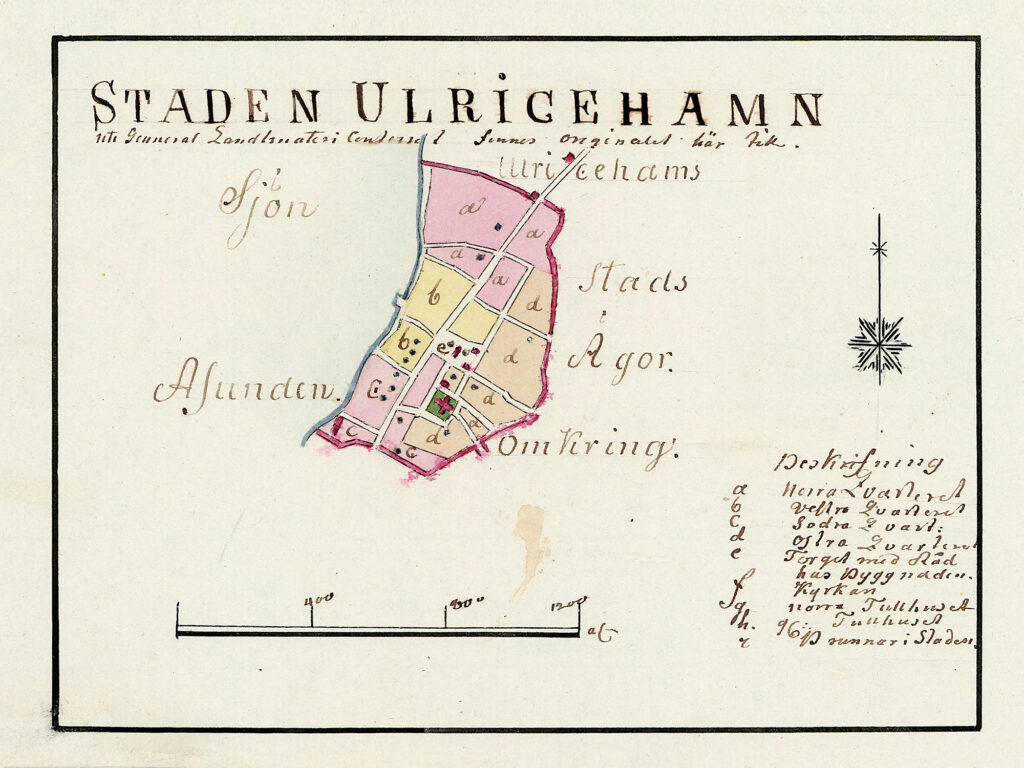 STADEN ULRICEHAMN
uti General Landtmäteri Contoret finnes originalet här till.
Ulricehams
Sjön
Stads
Ågor.
Asunden.
Omkring.
a
a
a
a
b
d
b
e
d
c
d
d
d
c
c
Beskrifning
a Norra Qvarteret
b Vestra Qvarteret
c Sodra Qvart:
d Ostra Qvarteret
e Torget med Råd
hus Byggnaden.
f Kyrkan
g norra Tullhuset
h. Tullhuset
Brunnar i Staden.
400
800
1200